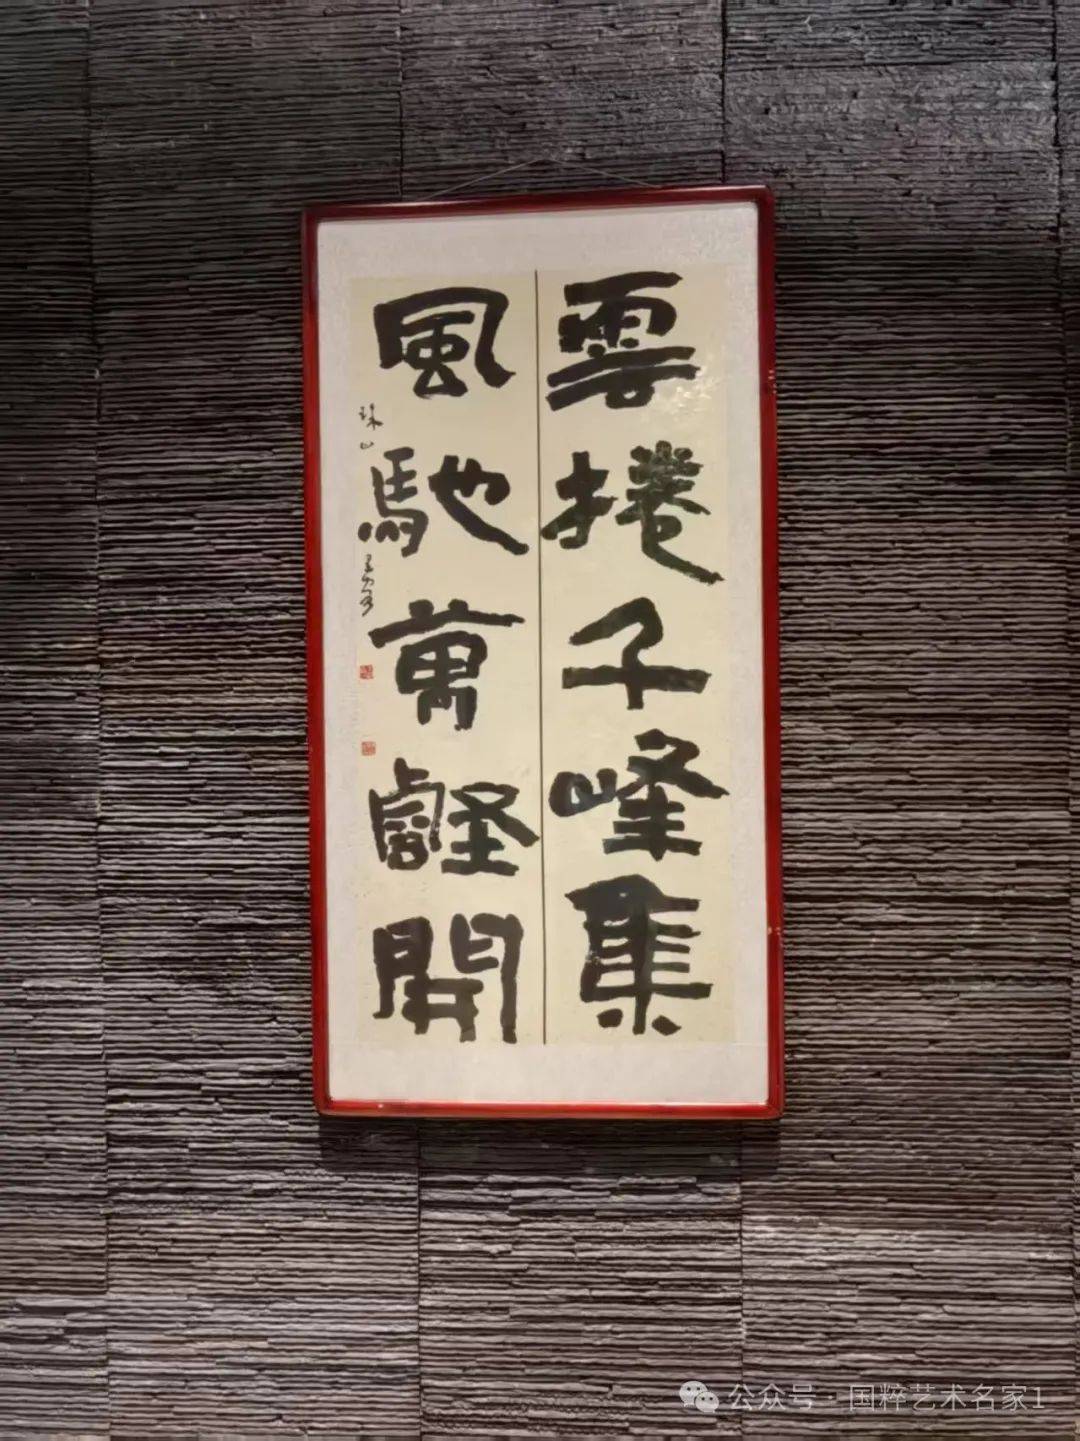 雲捲千峰集
風馳萬壑開
公众号 · 国粹艺术名家1